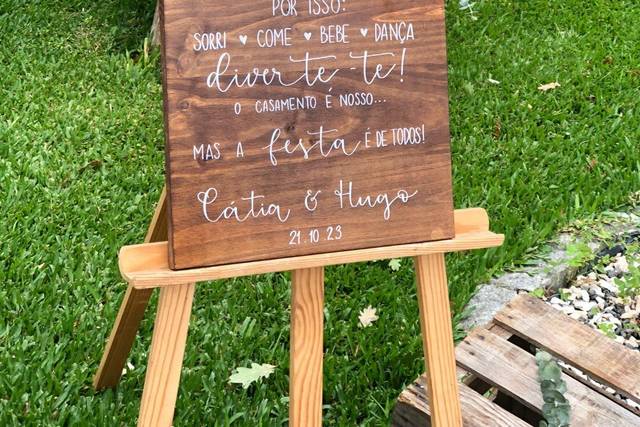 POR ISSO:
SORRI ♥ COME ♥ BEBE ♥ DANÇA
diverte-te!
O CASAMENTO É NOSSO...
MAS A festa É DE TODOS!
Cátia & Hugo
21.10.23